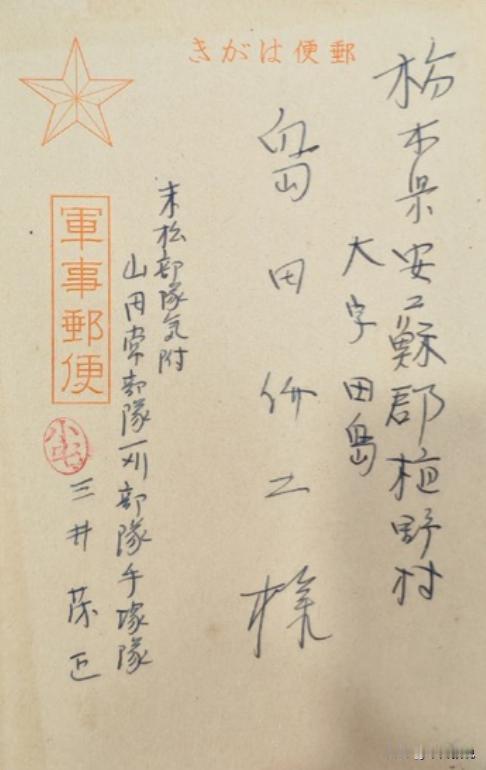 郵便はがき
栃木県安蘇郡植野村
大字田島
島田伊工様
軍事郵便
末松部隊気附
山田常部隊苅部隊手塚隊
三井茂正
小宅